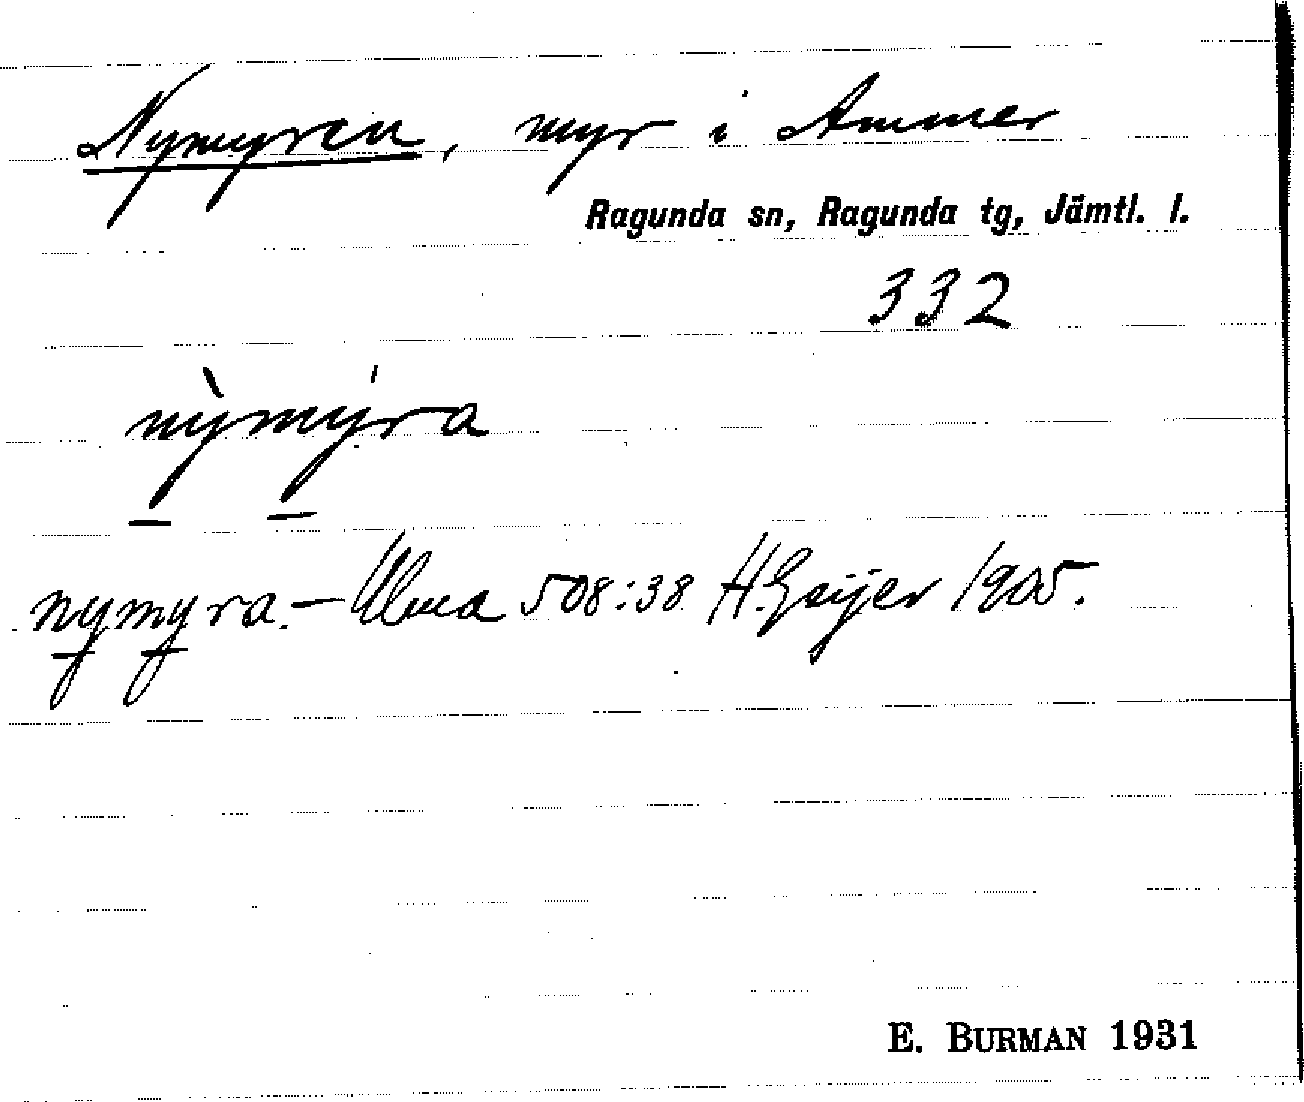 Nymyren, myr i Ammer
Ragunda sn, Ragunda tg, Jämtl. l.
332
nỳ̱mý̱ra
ny̱my̱ra. – Ulma 508:38 H. Geijer 1905.
E. BURMAN 1931